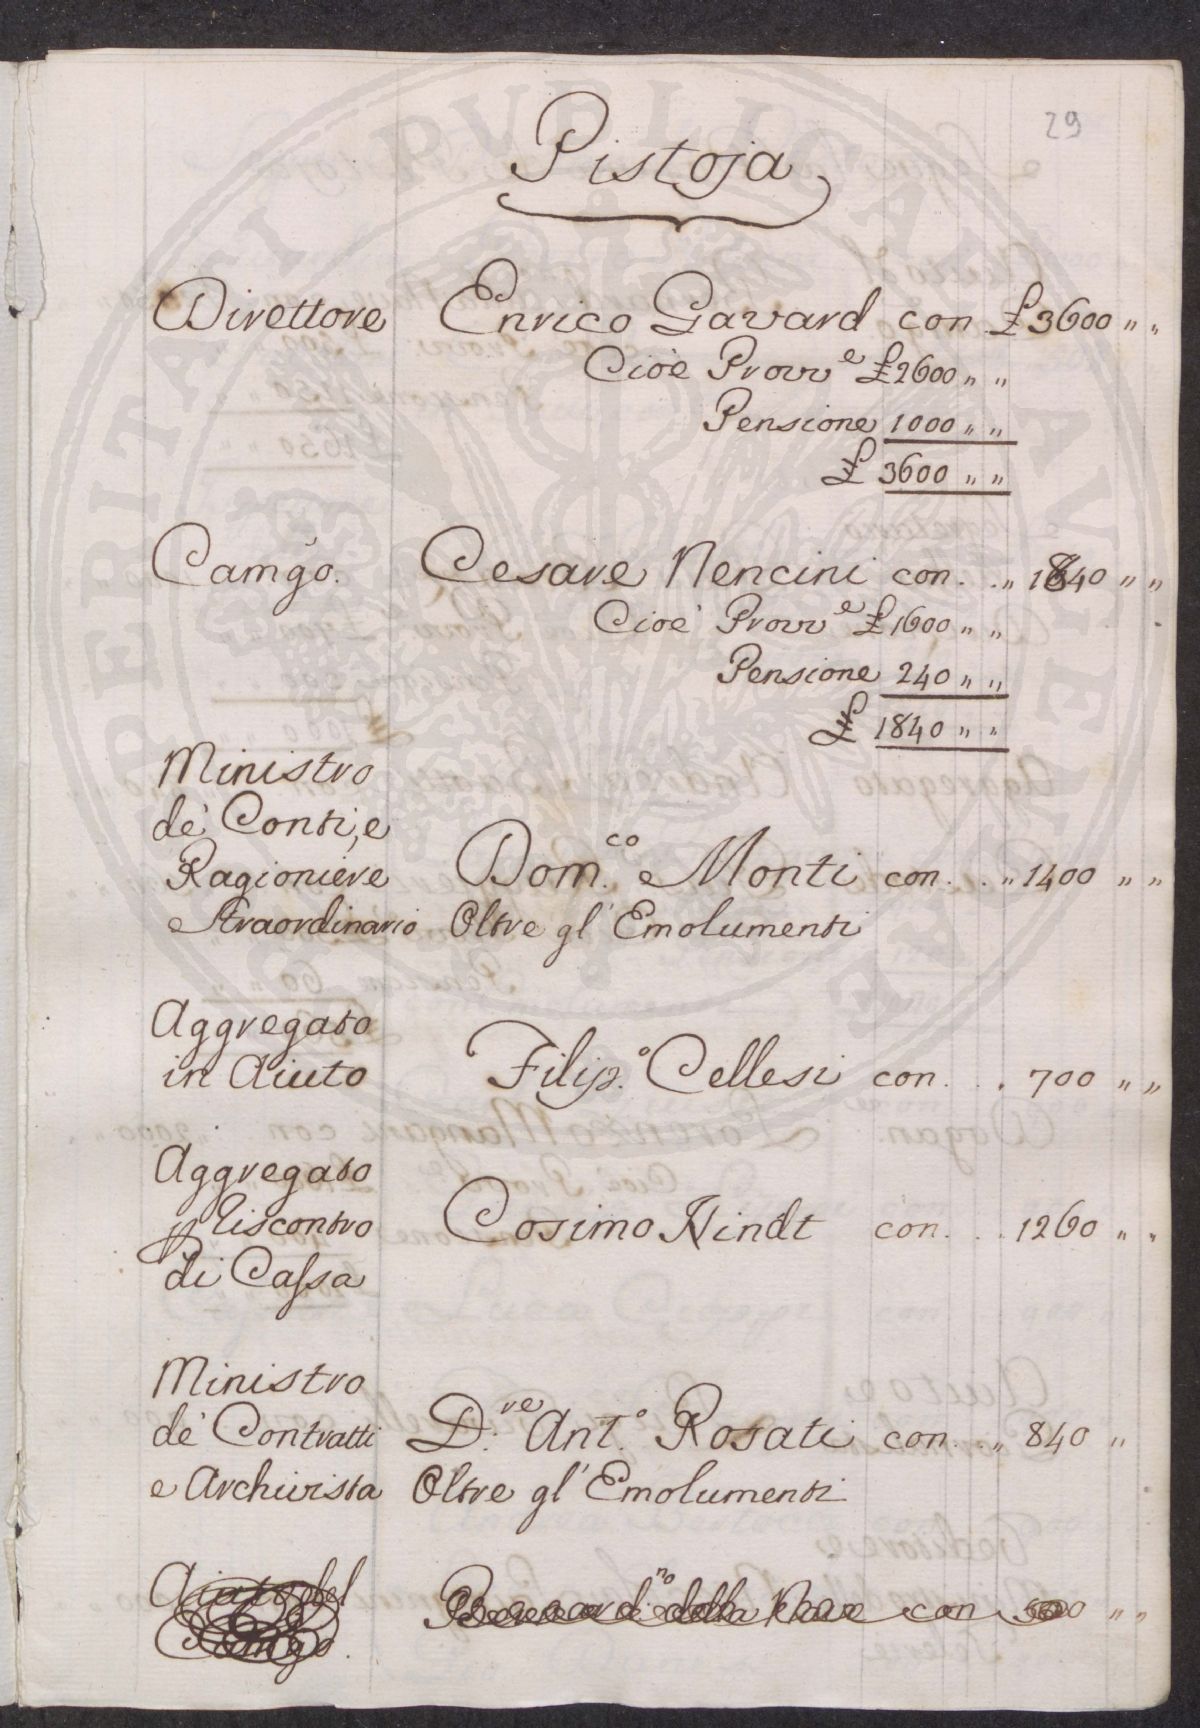 29
Pistoja
Direttore Enrico Gavard con £ 3600 " "
Cioè Provv.e £ 2600 " "
Pensione 1000 " "
£ 3600 " "
Camgo. Cesare Nencini con . . " 1840 " "
Cioè Provv.e £ 1600 " "
Pensione 240 " "
£ 1840 " "
Ministro
de' Conti, e
Ragioniere Dom.co Monti con . . " 1400 " "
Straordinario Oltre gl' Emolumenti
Aggregato
in Aiuto Filip.o Cellesi con . . . 700 " "
Aggregato
p Riscontro Cosimo Hindt con . . . 1260 " "
di Cassa
Ministro
de' Contratti D.re Ant.o Rosati con . . " 840 "
e Archivista Oltre gl' Emolumenti
Aiuto del Bernard.no della Nave con " "
Camgo.
PERITATI PVBLICAE